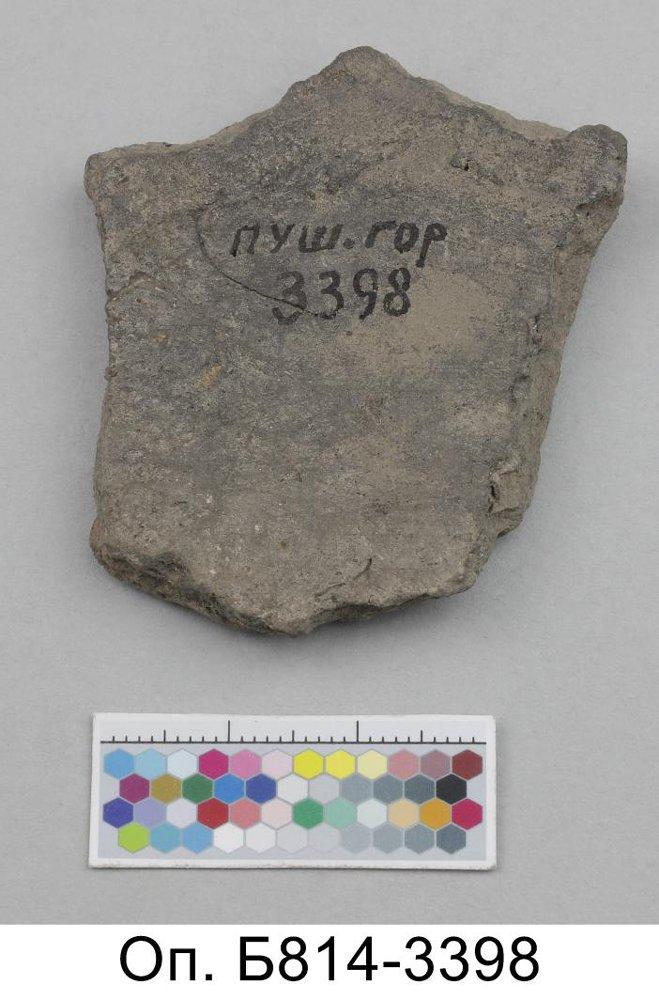 ПУШ.ГОР
3398
Оп. Б814-3398